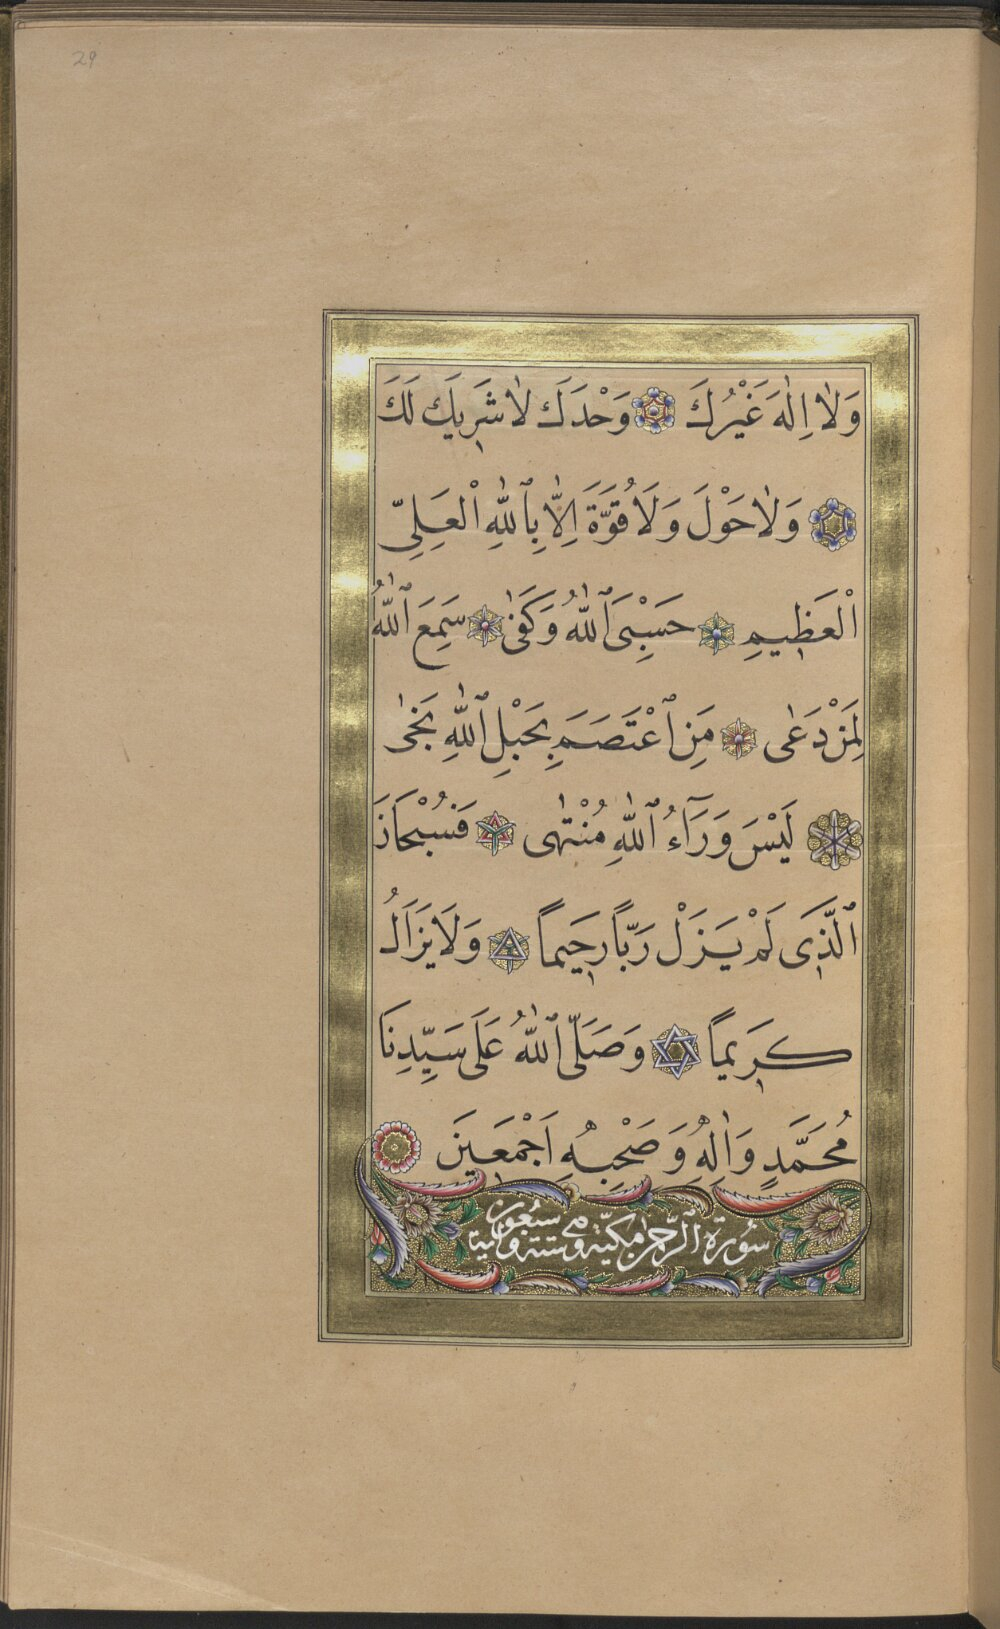 29
وَلٰا اِلٰهَ غَيْرُكَ وَحْدَكَ لٰا شَرِيكَ لَكَ
وَلٰا حَوْلَ وَلَا قُوَّةَ اِلّٰا بِٱللّٰهِ الْعَلِىِّ
الْعَظِيمِ حَسْبِىَ ٱللّٰهُ وَكَفٰى سَمِعَ ٱللّٰهُ
لِمَنْ دَعٰى مَنِ ٱعْتَصَمَ بِحَبْلِ ٱللّٰهِ نَجٰى
لَيْسَ وَرَآءُ ٱللّٰهِ مُنْتَهٰى فَسُبْحَانَ
ٱلَّذِى لَمْ يَزَلْ رَبّاً رَحِيماً وَلَا يَزَالُ
كَرِيماً وَصَلَّى ٱللّٰهُ عَلَى سَيِّدِنَا
مُحَمَّدٍ وَاٰلِهِ وَصَحْبِهِ اَجْمَعِينَ
سُورَةُ ٱلرَّحْمٰنِ مَكِّيَّة وَهِىَ سِتّة وَسَبْعُونَ